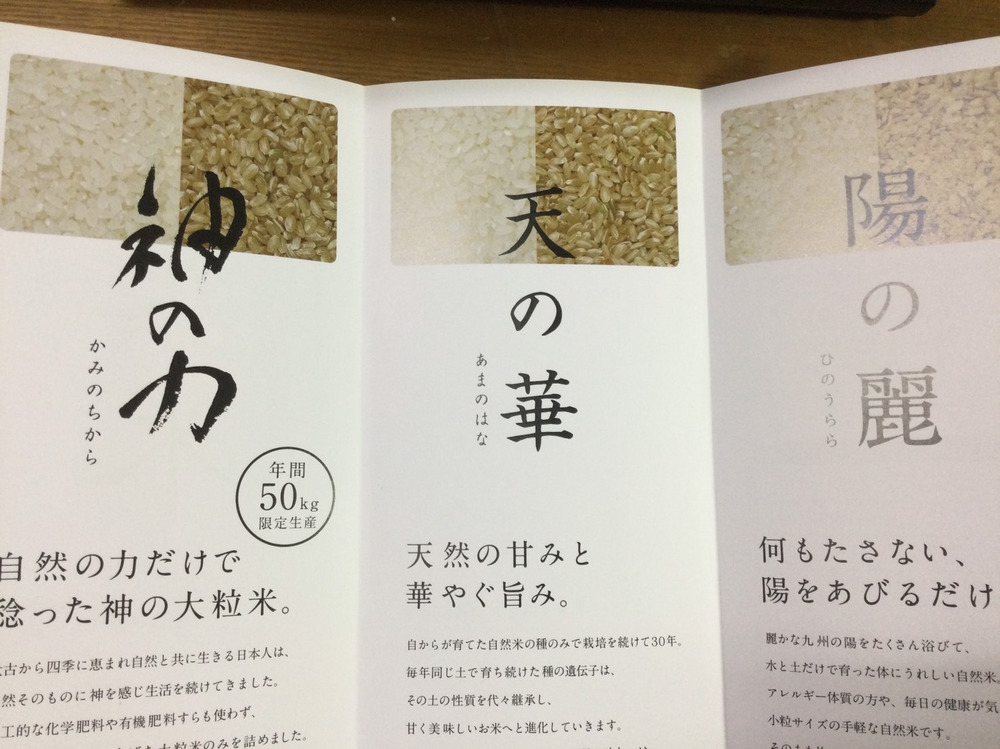 神の力
かみのちから
年間
50kg
限定生産
自然の力だけで
稔った神の大粒米。
古から四季に恵まれ自然と共に生きる日本人は、
然そのものに神を感じ生活を続けてきました。
工的な化学肥料や有機肥料すらも使わず、
大粒米のみを詰めました。
天の華
あまのはな
天然の甘みと
華やぐ旨み。
自からが育てた自然米の種のみで栽培を続けて30年。
毎年同じ土で育ち続けた種の遺伝子は、
その土の性質を代々継承し、
甘く美味しいお米へと進化していきます。
陽の麗
ひのうらら
何もたさない、
陽をあびるだけ
麗かな九州の陽をたくさん浴びて、
水と土だけで育った体にうれしい自然米。
アレルギー体質の方や、毎日の健康が気
小粒サイズの手軽な自然米です。